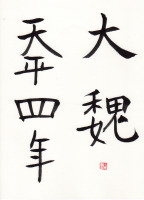 大魏
天平四年